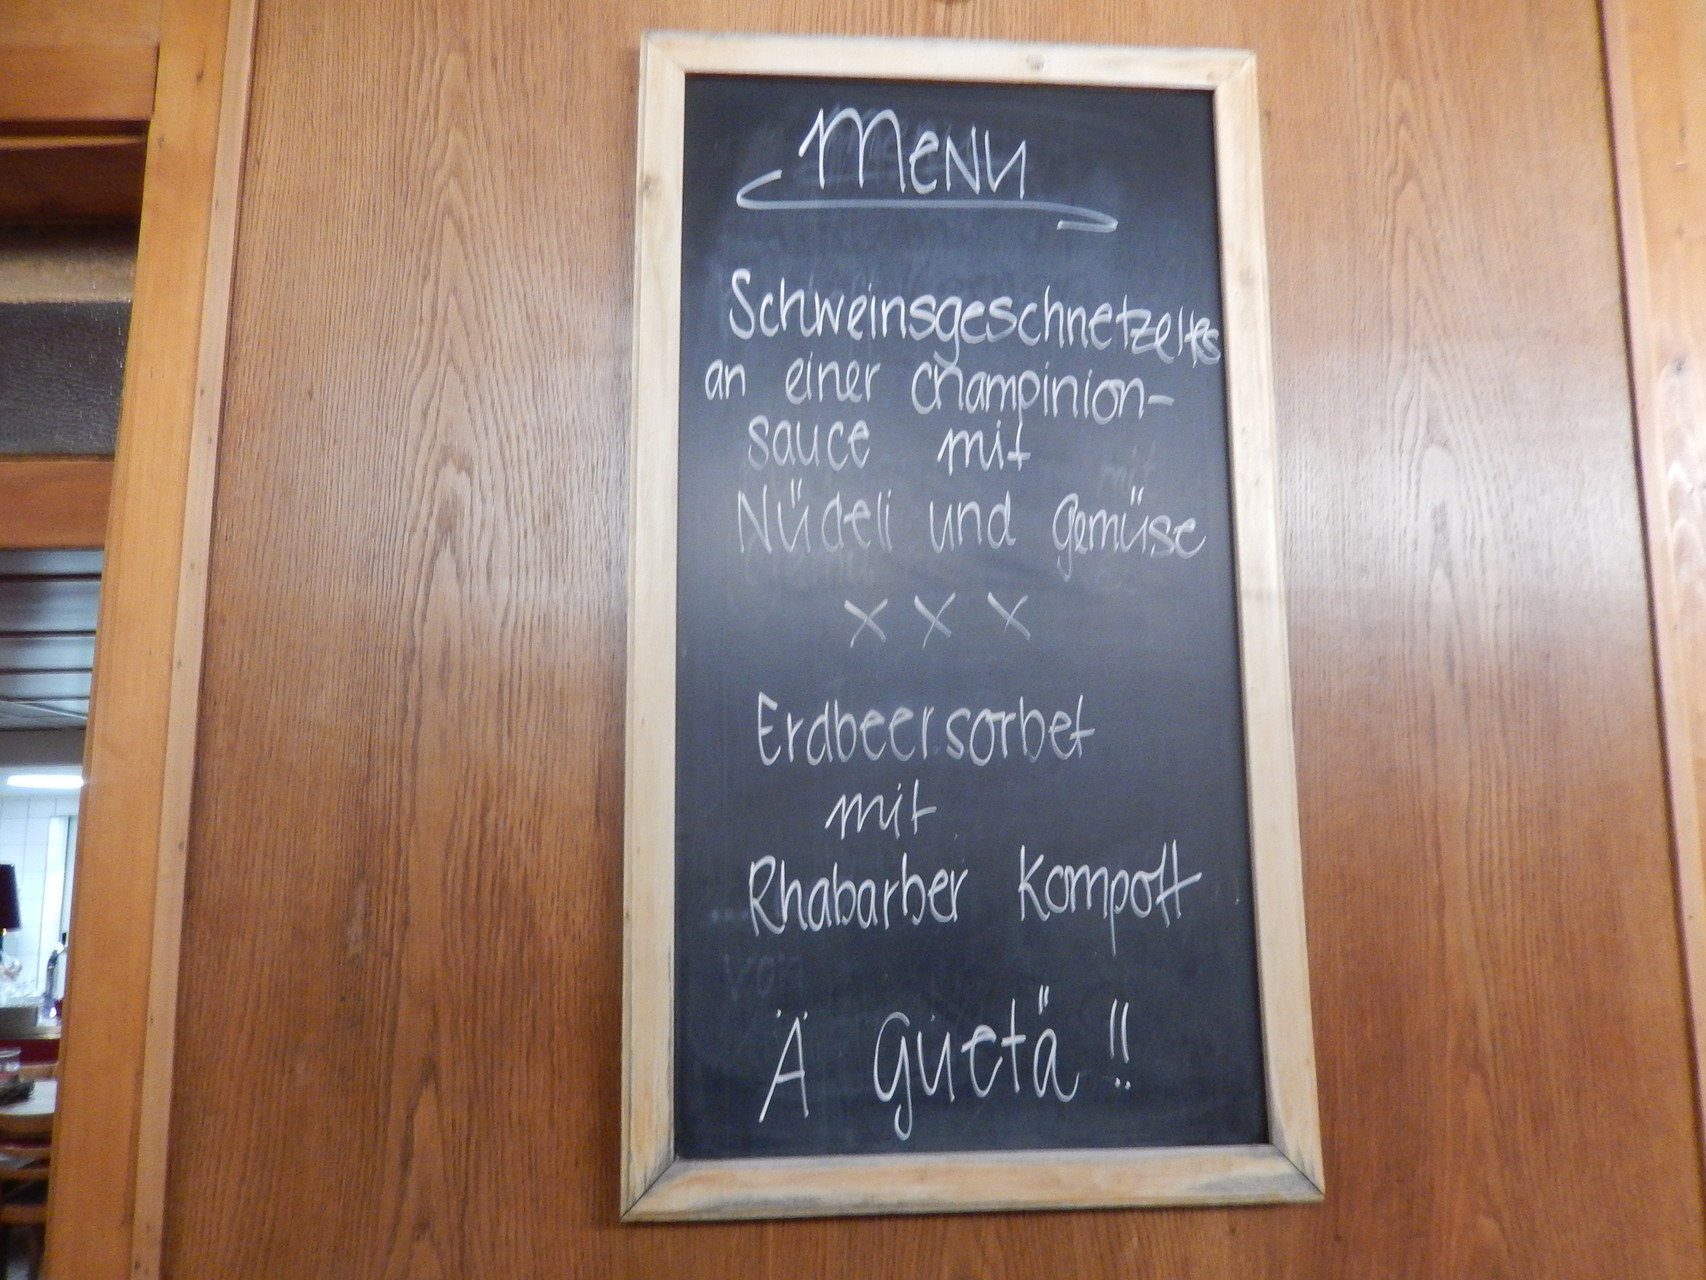 Menu
Schweinsgeschnetzeltes
an einer Champinion-
sauce mit
Nüdeli und Gemüse
x x x
Erdbeersorbet
mit
Rhabarber Kompott
Ä Guetä !!